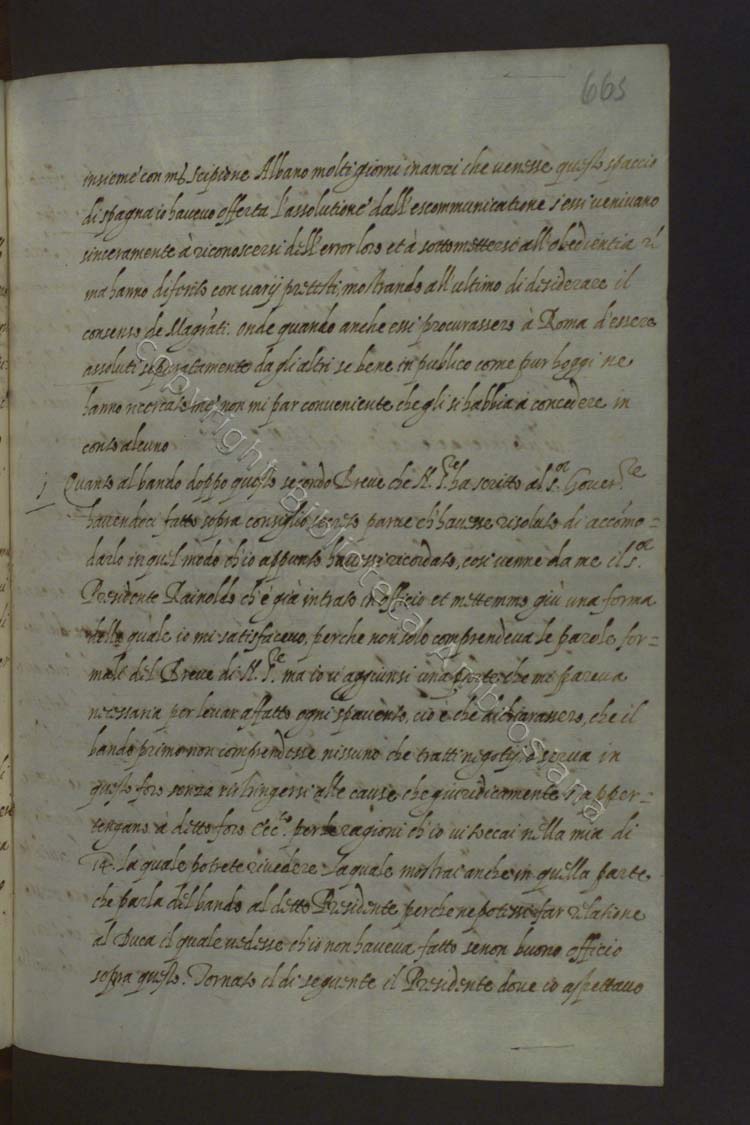 665
insieme con ms. Scipione Albano molti giorni inanzi che venesse questo spaccio
di spagna io havevo offerta l'assolutione dall'escommunicatione s'essi venivano
sinceramente à riconoscersi dell'error loro et à sottomettersi all'obedientia
ma hanno diferito con varij pretesti, mostrando all'ultimo di desiderare il
consenso de Magrati. onde quando anche essi procurassero à Roma d'essere
assoluti separatamente da gli altri se bene in publico come pur hoggi ne
hanno ricercato me, non mi par conveniente che gli si habbia à concedere in
conto alcuno
Quanto al bando doppo questo secondo Breve che N. Sre ha scritto al Sor Gover.re
havendoci fatto sopra consiglio secreto parve ch'havesse risoluto di accómo-
darlo in quel modo ch'io appunto havessi ricordato, cosi venne da me il Sor
Presidente Rainoldo ch'è già intrato in officio et mettemmo giù una forma
della quale io mi satisfacevo, perche non solo comprendeva le parole for-
mali del Breve di N. Sre ma io vi aggiunsi una parte che mi pareva
necessaria per levar affatto ogni spavento, cio è che dichiarassero, che il
bando primo non comprendesse nissuno che tratti negotij, ò serva in
questo foro senza ristringersi alle cause che giuridicamente s'apper-
tengano à detto foro Ecc.o per le ragioni ch'io vi toccai nella mia di
14. la quale potrete rivedere. La quale mostrai anche in quella parte
che parla del bando al detto Presidente perche ne potesse far relatione
al Duca il quale vedesse ch'io non haveva fatto se non buono officio
sopra questo. Tornato il di seguente il Presidente dove io aspettavo
Copyright Biblioteca Ambrosiana